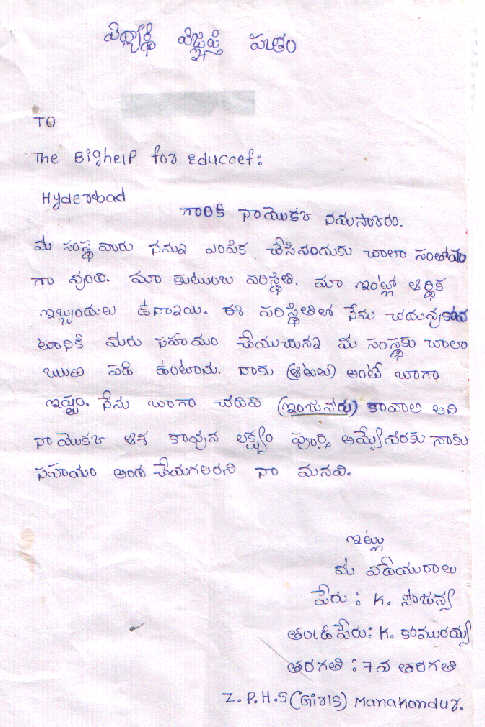 విద్యార్థి విజ్ఞప్తి పత్రం
TO
The Bighelp for educoef:
Hyderabad
గారికి నాయొకఠ నమసారం.
మీ సంస్థ వారు నన్ను ఎంపిక చేసినందుకు చాలా సంతోషం
గా వుంది. మా కుటుంబ పరిస్థితి. మా ఇంట్లో ఆర్థిక
ఇబ్బందులు ఉన్నాయి. ఈ పరిస్థితిలో నేను చదువుకోవ
టానికి మీరు సహాయం చేయుచున్న మీ సంస్థకు చాలా
ఋణ పడి ఉంటాను. నాకు (ఆటలు) అంటే బాగా
ఇష్టం. నేను బాగా చదివి (ఇంజనీరు) కావాలి అని
నా యొకఠ ఈ లక్ష్యం పూర్తి అయ్యేవరకు నాకు
సహాయం అంద చేయగలరని నా మనవి.
ఇట్లు
మీ విధేయురాలు
పేరు : K. సౌజన్య
తండ్రి పేరు: K. కొమురయ్య
తరగతి : 7వ తరగతి
Z.P.H.S (Girls) Manakondur.